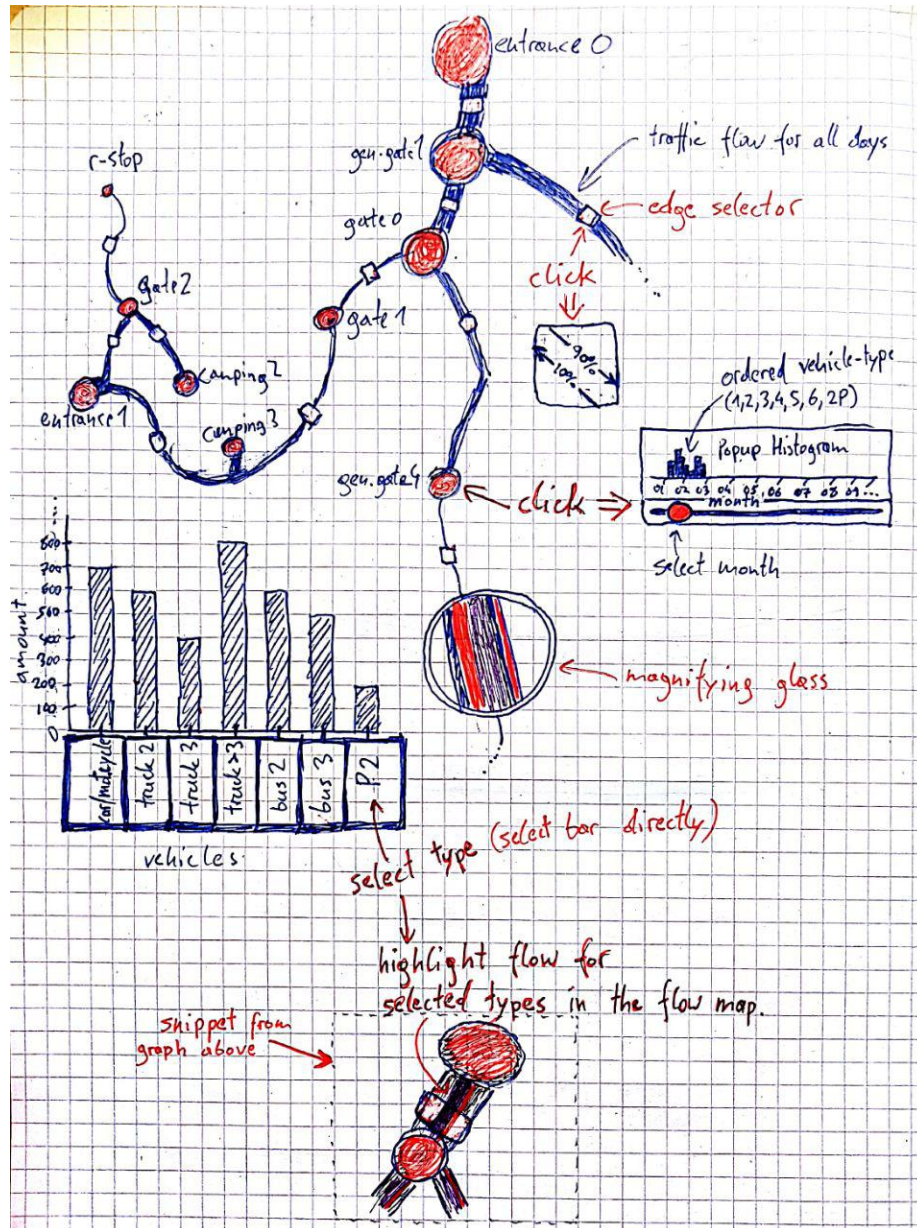 entrance 0
gen.gate1
traffic flow for all days
r-stop
edge selector
gate 0
click
gate2
gate 1
90%
10%
camping2
ordered vehicle-type
(1,2,3,4,5,6,2P)
entrance1
camping3
Popup Histogram
01 02 03 04 05 06 07 08 09 ...
month
gen.gate4
click
select month
amount
800
700
600
500
400
300
200
100
0
magnifying glass
car/motorcycle
truck 2
truck 3
truck>3
bus 2
bus 3
P.2
vehicles
select type (select bar directly)
highlight flow for
selected types in the flow map.
snippet from
graph above